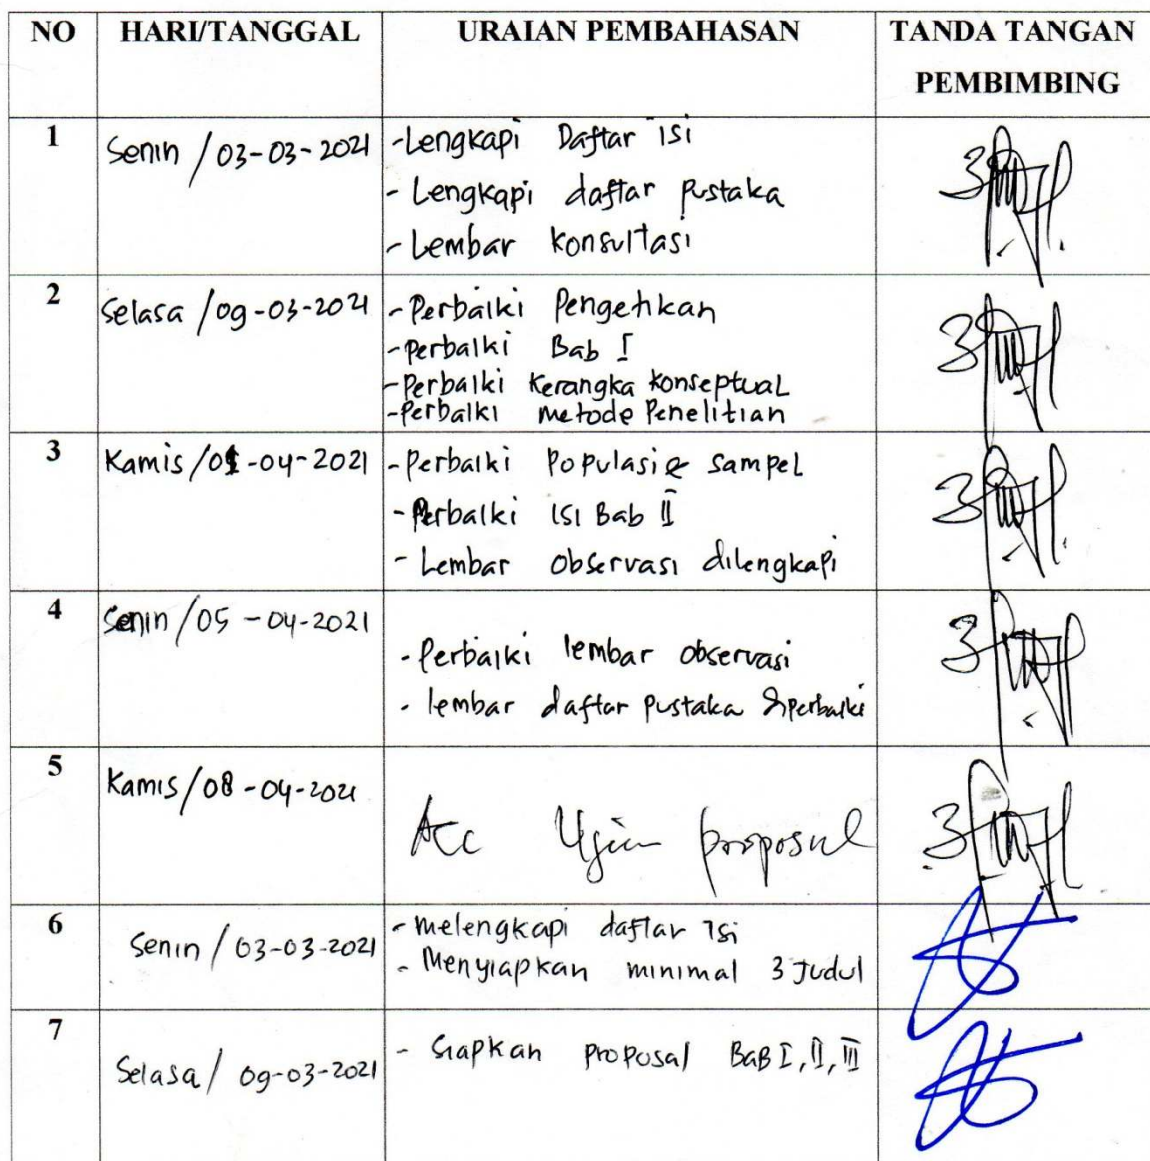 NO HARI/TANGGAL URAIAN PEMBAHASAN TANDA TANGAN
PEMBIMBING
1 Senin / 03-03-2021 -Lengkapi Daftar isi
- Lengkapi daftar pustaka
- Lembar konsultasi
2 Selasa / 09-03-2021 -Perbaiki Pengetikan
-perbaiki Bab I
-Perbaiki Kerangka Konseptual
-Perbaiki metode Penelitian
3 Kamis/01-04-2021 -Perbaiki Populasi & sampel
-Perbaiki isi Bab II
- Lembar observasi dilengkapi
4 Senin / 05 - 04-2021
- Perbaiki lembar observasi
- lembar daftar pustaka diperbaiki
5 Kamis/08 - 04-2021
Acc Ujian proposal
6 Senin / 03-03-2021 - melengkapi daftar isi
- Menyiapkan minimal 3 Judul
7 Selasa / 09-03-2021 - siapkan proposal BAB I, II, III